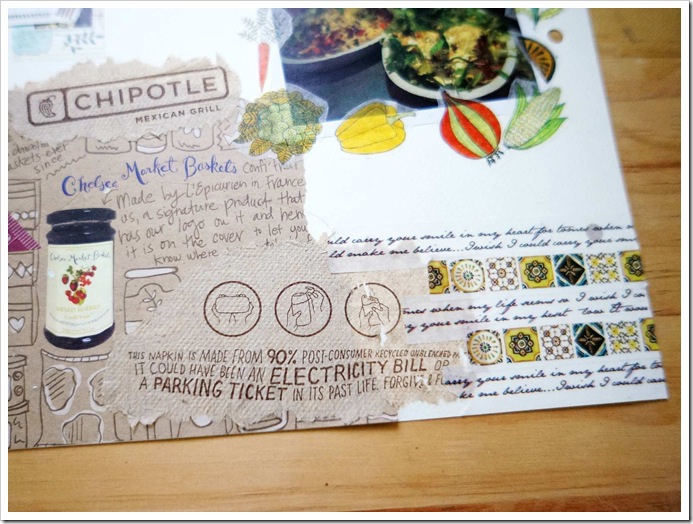 CHIPOTLE
MEXICAN GRILL
baskets ever
since
Chelsea Market Baskets confiture
Made by L'Epicurien in France
us, a signature product that
has our logo on it and here
it is on the cover to let you
know where
Chelsea Market Baskets
THIS NAPKIN IS MADE FROM 90% POST-CONSUMER RECYCLED UNBLEACHED
IT COULD HAVE BEEN AN ELECTRICITY BILL OR
A PARKING TICKET IN ITS PAST LIFE. FORGIVE &
could carry your smile in my heart for times when my
could make me believe...I wish I could carry your smile
times when my life seems so I wish I
carry your smile in my heart
carry your smile in my heart for
make me believe...I wish I could carry your